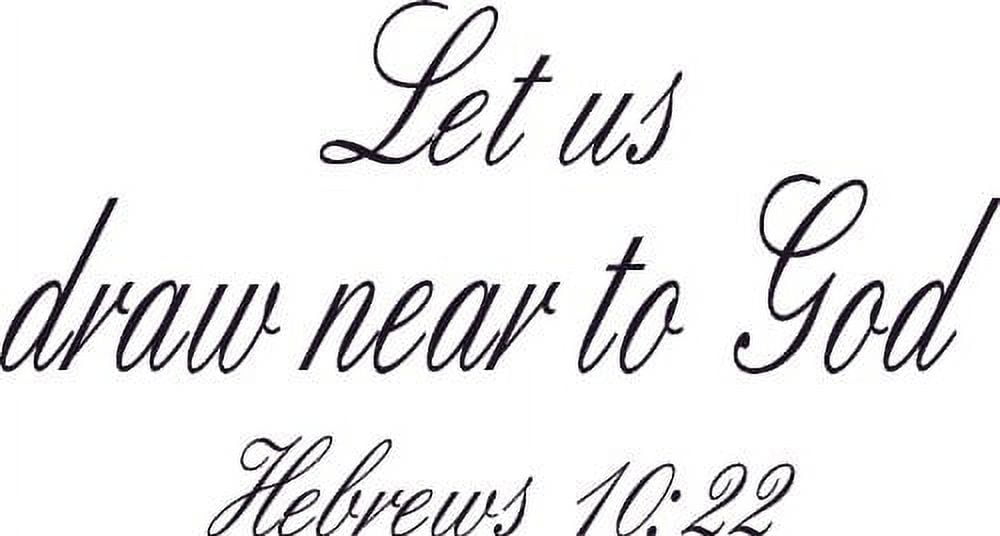 Let us
draw near to God
Hebrews 10:22